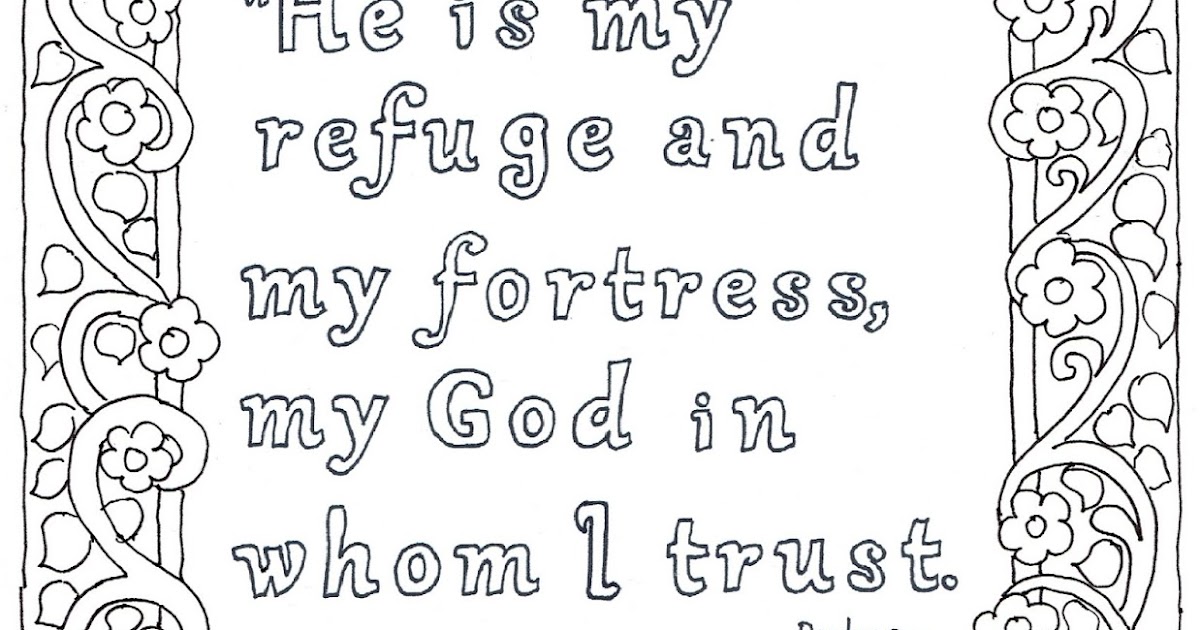 "He is my
refuge and
my fortress,
my God in
whom I trust.